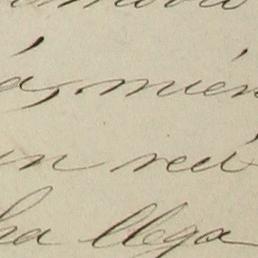 á, mién
un reci
ha llega